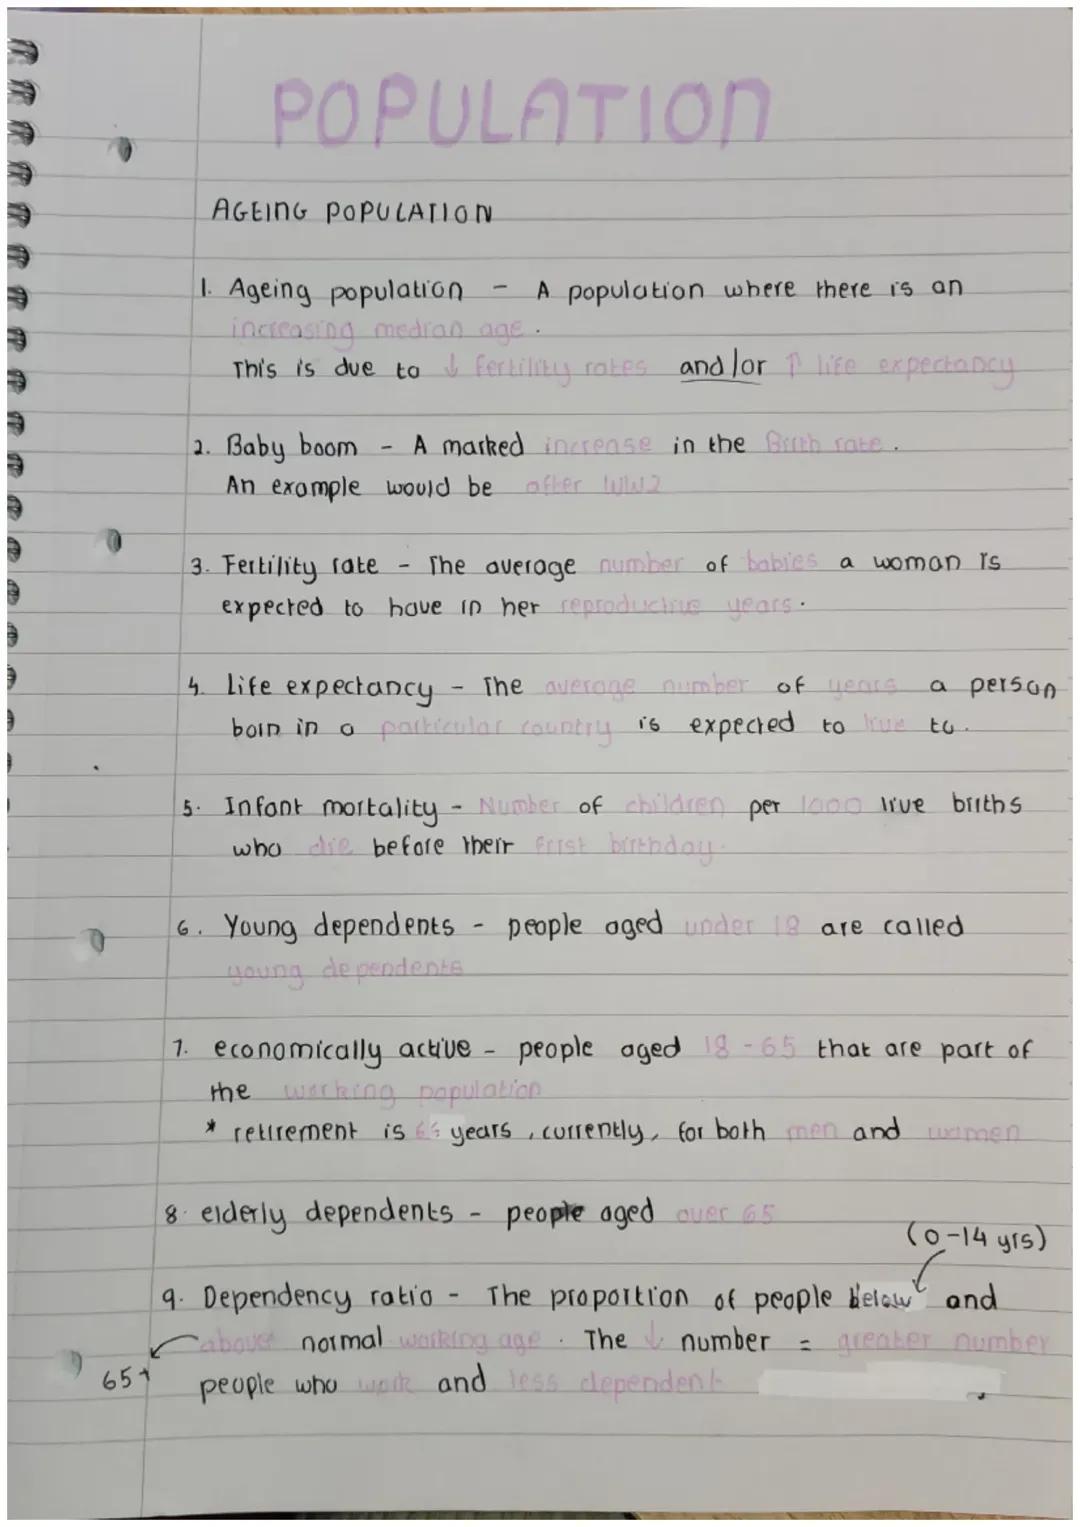 POPULATION
AGEING POPULATION
1. Ageing population - A population where there is an
increasing median age.
This is due to ↓ fertility rates and/or ↑ life expectancy
2. Baby boom - A marked increase in the Birth rate.
An example would be after WW2
3. Fertility rate - The average number of babies a woman is
expected to have in her reproductive years.
4. Life expectancy - The average number of years a person
born in a particular country is expected to live to.
5. Infant mortality - Number of children per 1000 live births
who die before their first birthday.
6. Young dependents - people aged under 18 are called
young dependents
7. economically active - people aged 18-65 that are part of
the working population
* retirement is years, currently, for both men and women
8. elderly dependents - people aged over 65
(0-14 yrs)
9. Dependency ratio - The proportion of people below and
above normal working age. The ↓ number = greater number
65+
people who work and less dependent.